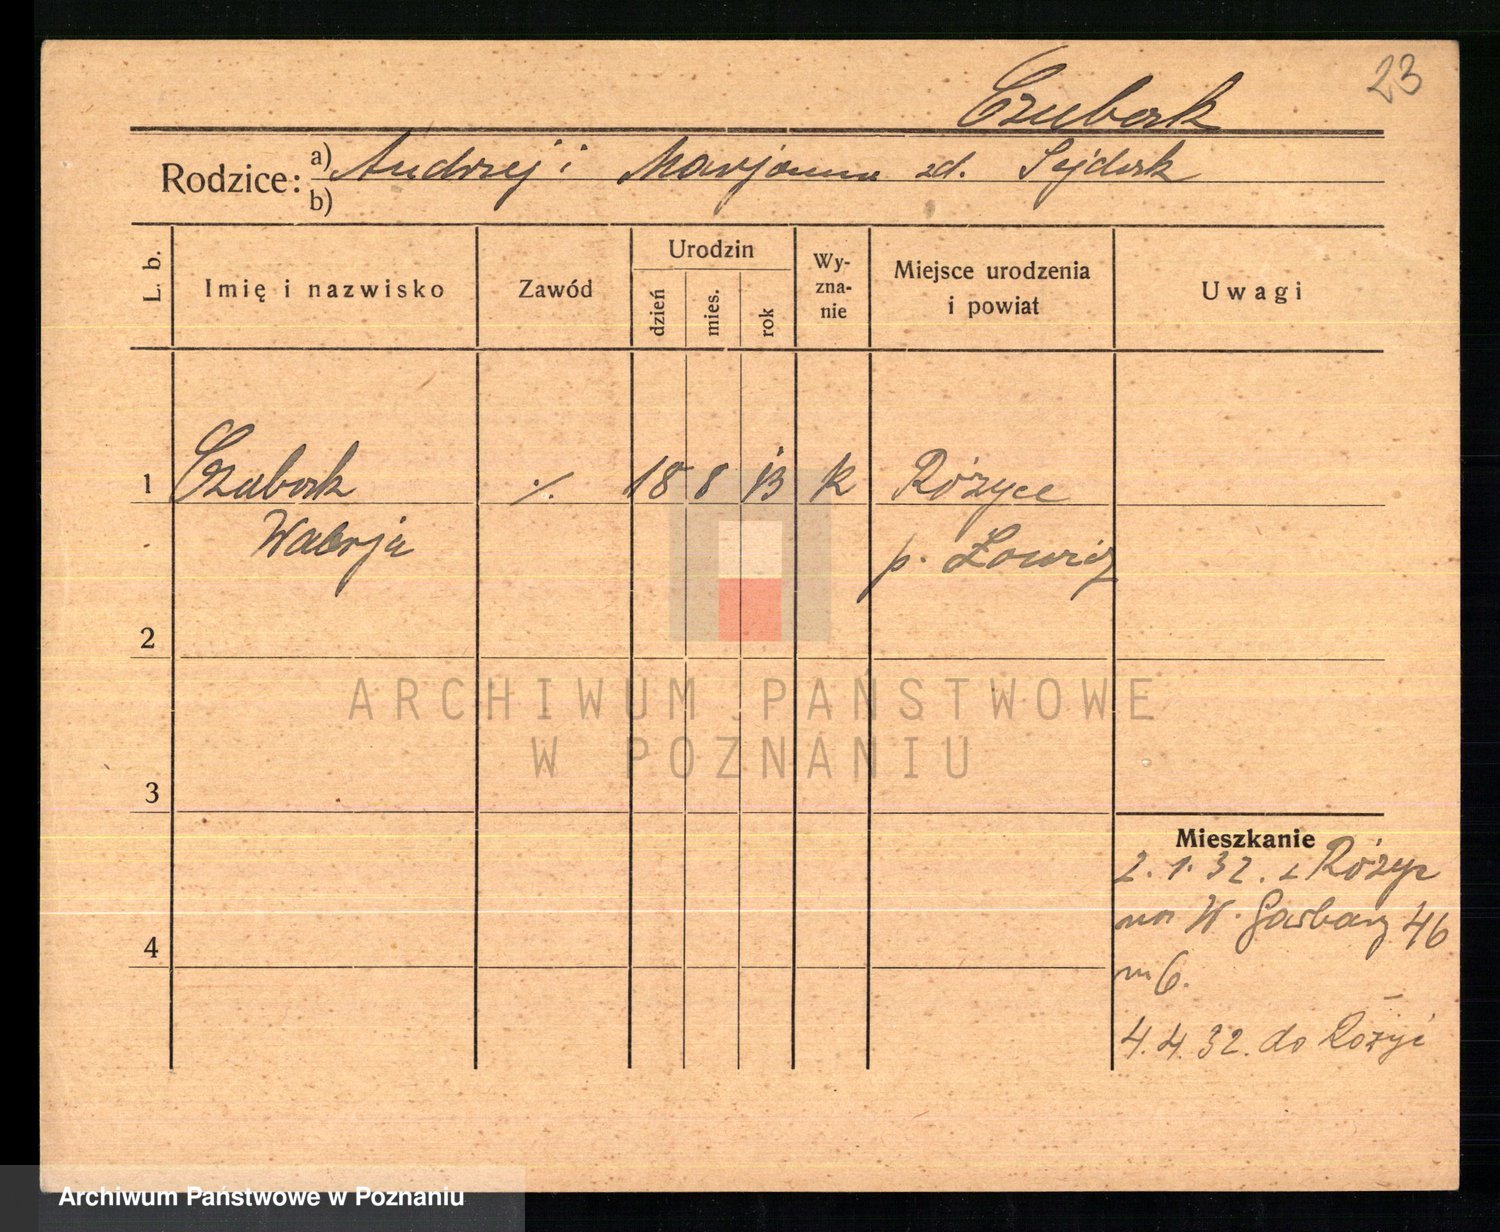 23
Czubak
Rodzice: a) Andrzej i Marjanna zd. Sejdak
b)
L. b.
Imię i nazwisko
Zawód
Urodzin
dzień
mies.
rok
Wy-
zna-
nie
Miejsce urodzenia
i powiat
Uwagi
1 Czubak ·/. 18 8 13 k Różyce
p. Łowicz
2
3
4
Mieszkanie
2.1.32. z Różyc
W. Garbary 46
m 6.
4.4.32. do Różyc
ARCHIWUM PAŃSTWOWE
W POZNANIU
Archiwum Państwowe w Poznaniu